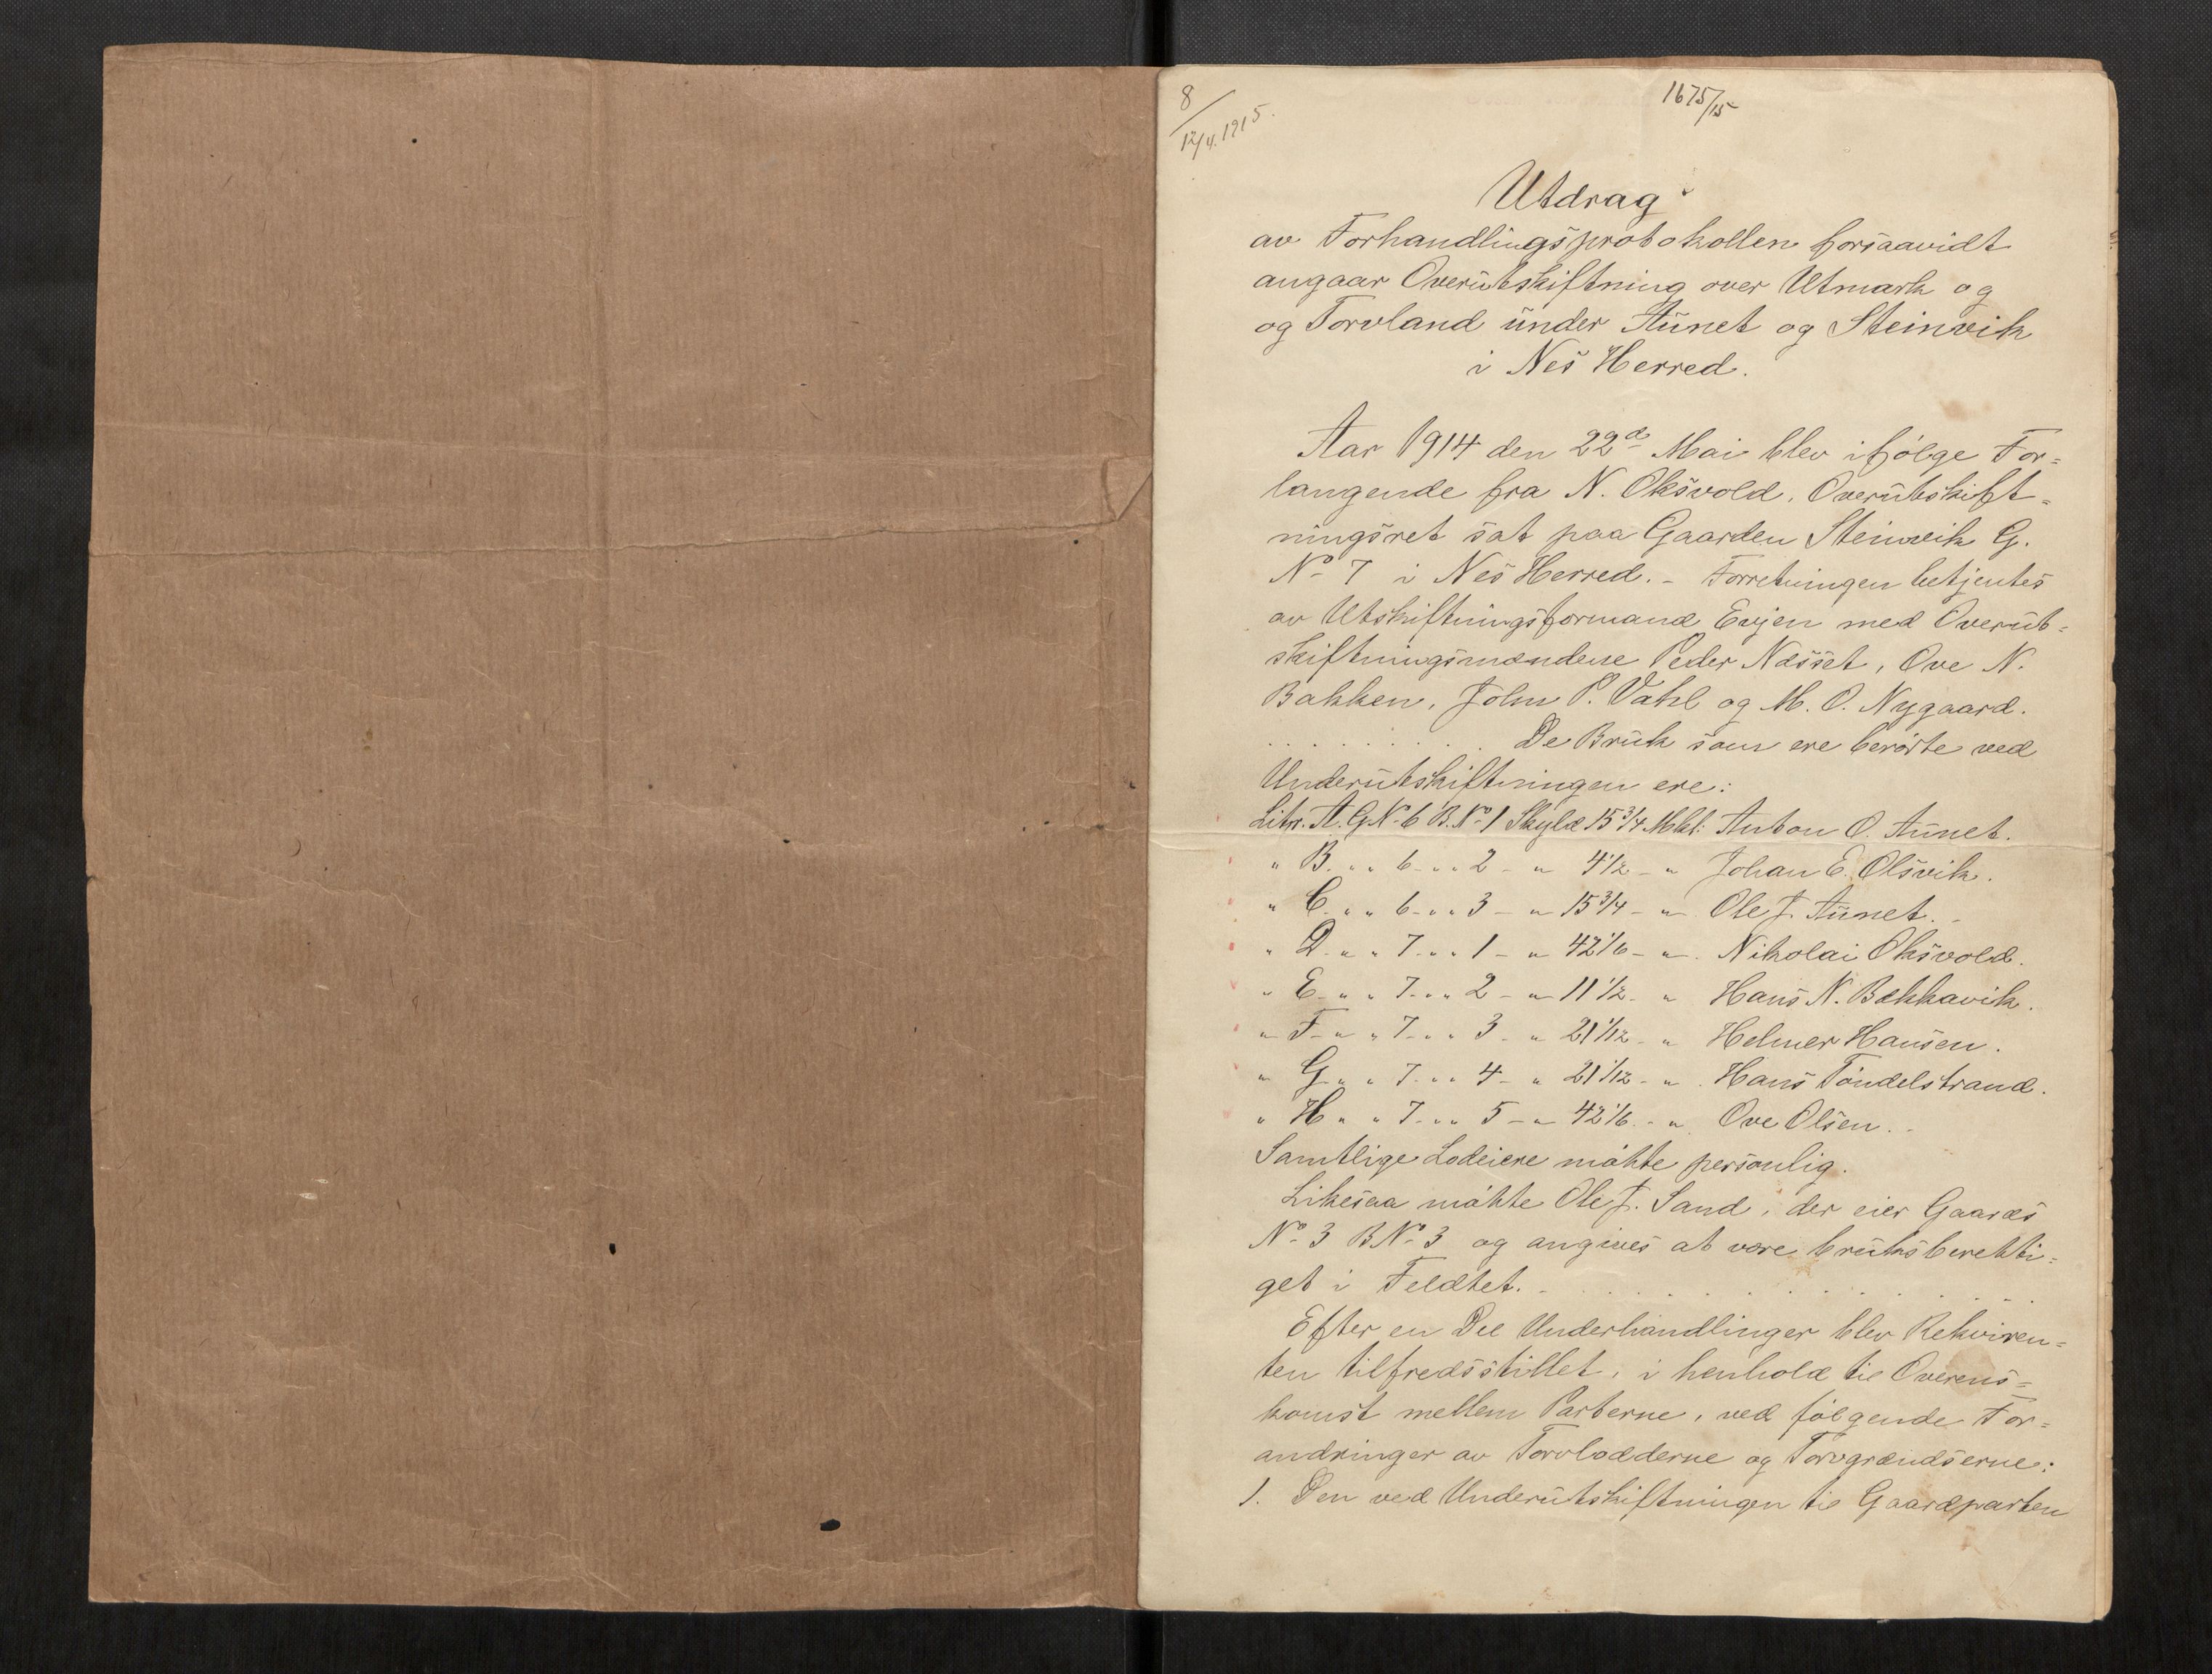 8/12/4. 1915.
1675/15
Utdrag
av Forhandlingsprotokollen forsaavidt
angaar Overutskiftning over Utmark og
og Torvland under Aunet og Steinvik
i Nes Herred.
Aar 1914 den 22de Mai blev ifølge For=
langende fra N. Oksvold, Overutskift=
ningsret sat paa Gaarden Steinvik G.
No 7 i Nes Herred. - Forretningen betjentes
av Utskiftningsformand Evjen med Overut=
skiftningsmændene Peder Næsset, Ove N.
Bakken, John P. Vahl og M. O. Nygaard.
. . . . . . . . . De Bruk som ere berørte ved
Underutskiftningen ere:
Litr. A. G.No 6 B.No 1 Skyld 15 3/4 Mkl: Anton O. Aunet.
" B. " " 6 - " " 2 - " 4 1/2 - " Johan E. Olsvik.
" C. " " 6 - " " 3 - " 15 3/4 - " Ole J. Aunet. -
" D. " " 7 - " " 1 - " 42 1/6 - " Nikolai Oksvold.
" E. " " 7 - " " 2 - " 11 1/2 - " Hans N. Bekkavik.
" F. " " 7 - " " 3 - " 21 1/12 - " Helmer Hansen.
" G. " " 7 - " " 4 - " 21 1/12 - " Hans Tøndelstrand.
" H. " " 7 - " " 5 - " 42 1/6 - " Ove Olsen. -
Samtlige Lodeiere møtte personlig.
Likesaa møtte Ole J. Sand, der eier Gaards
No 3 B.No 3 og angives at være bruksberetti=
get i Feldtet. - . . . . . . . . . . . .
Efter en Del Underhandlinger blev Rekviren=
ten tilfredsstillet, i henhold til Overens=
komst mellem Parterne, ved følgende For=
andringer av Torvlodderne og Torvgrændserne:
1. Den ved Underutskiftningen til Gaardparten